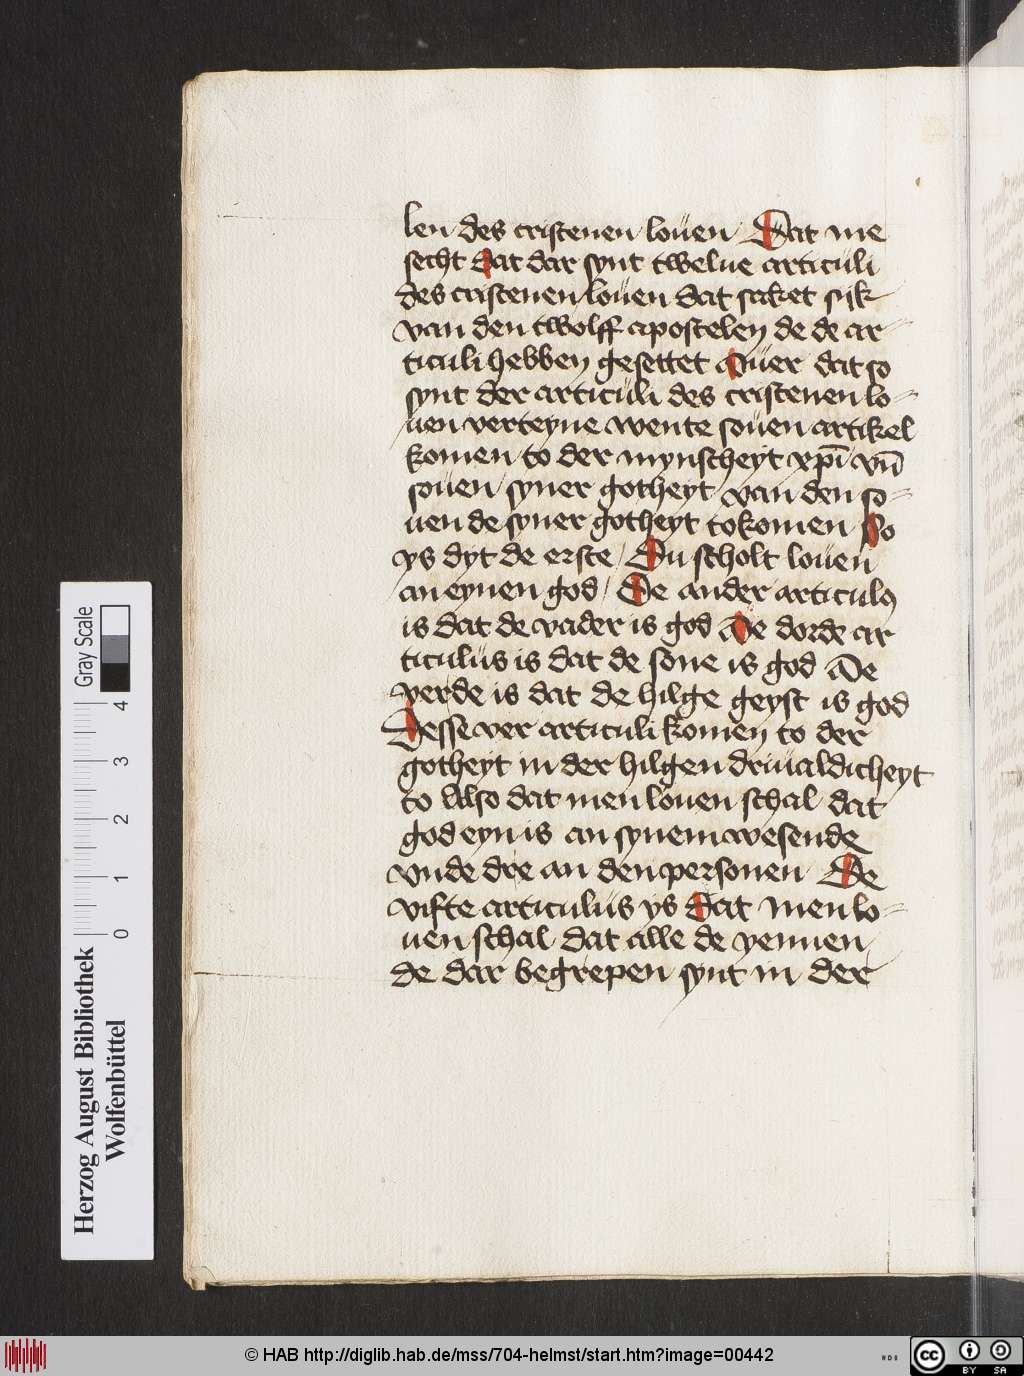 len des cristenen louen Dat me
secht dat dar synt twelue articuli
des cristenen louen dat saket sijk
van den twolff apostelen de de ar-
ticuli hebben gesettet Auer dat so
synt der articuli des cristenen lo-
uen verteyne wente souen artikel
komen to der mynscheyt xpi vn̄
souen syner gotheyt van den so-
uen de syner gotheyt tokomen So
ys dyt de erste / Du scholt louen
an eynen god / De ander articulꝯ
is dat de vader is god De dorde ar
ticulus is dat de sone is god De
verde is dat de hilge geyst is god
Desse ver articuli komen to der
gotheyt in der hilgen driualdicheyt
to Also dat men louen schal dat
god eyn is an synem wesende
vnde dre an den personen De
vifte articulus ys dat men lo-
uen schal dat alle de yennen
de dar begrepen synt in der
Gray Scale
4
3
2
1
0
Herzog August Bibliothek
Wolfenbüttel
© HAB http://diglib.hab.de/mss/704-helmst/start.htm?image=00442
cc
BY SA